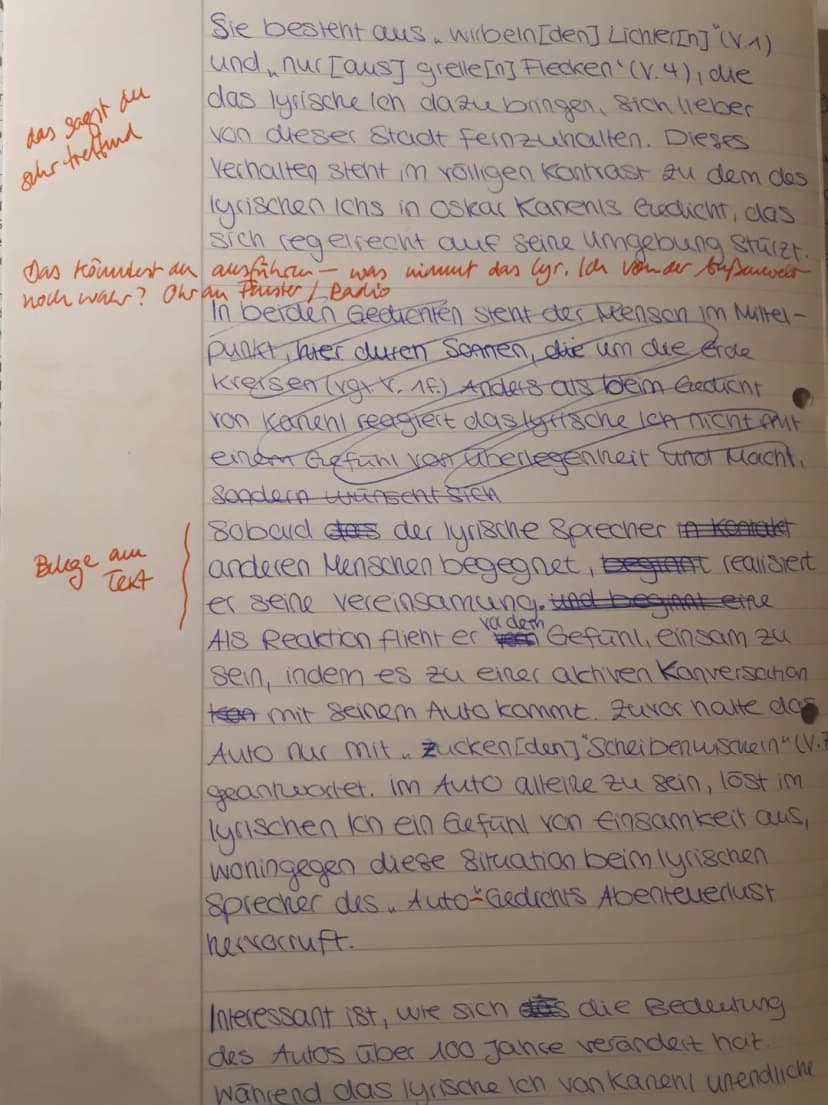 Sie besteht aus „wirbeln[den] Lichter[n]" (V.1)
und „nur [aus] grelle[n] Flecken" (V.4), die
das lyrische Ich dazu bringen, sich lieber
von dieser Stadt fernzuhalten. Dieses
Verhalten steht im völligen Kontrast zu dem des
lyrischen Ichs in Oskar Kanehls Gedicht, das
sich regelrecht auf seine Umgebung stürzt.
das sagst du
sehr treffend
Das könntest du ausführen – was nimmt das lyr. Ich von der Außenwelt
noch wahr? Ohr am Fenster / Radio
In beiden Gedichten steht der Mensch im Mittel-
punkt, hier durch Sonnen, die um die Erde
kreisen (vgl. V. 1f.) Anders als beim Gedicht
von Kanehl reagiert das lyrische Ich nicht mit
einem Gefühl von Überlegenheit und Macht,
sondern wünscht sich
Sobald das der lyrische Sprecher in Kontakt
anderen Menschen begegnet, beginnt realisiert
er seine Vereinsamung. und beginnt eine
Belege am
Text
Als Reaktion flieht er vor dem Gefühl, einsam zu
sein, indem es zu einer aktiven Konversation
kon mit seinem Auto kommt. Zuvor hatte das
Auto nur mit „zucken[den]" Scheibenwischern" (V.7
geantwortet. Im Auto alleine zu sein, löst im
lyrischen Ich ein Gefühl von Einsamkeit aus,
woningegen diese Situation beim lyrischen
Sprecher des „Auto"-Gedichts Abenteuerlust
hervorruft.
Interessant ist, wie sich das die Bedeutung
des Autos über 100 Jahre verändert hat.
Während das lyrische Ich von Kanehl unendliche